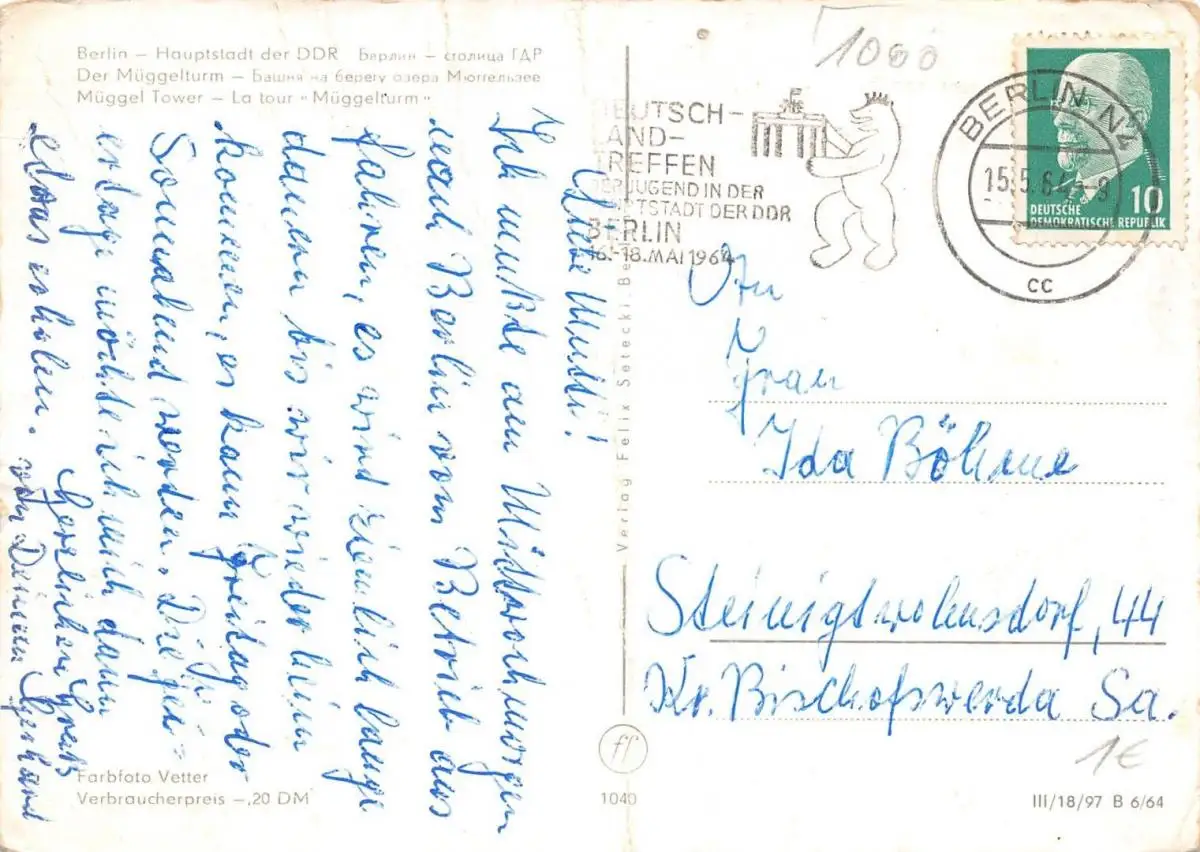 Berlin – Hauptstadt der DDR Берлин – столица ГДР
Der Müggelturm – Башня на берегу озера Мюггельзее
Müggel Tower – La tour "Müggelturm"
1000
DEUTSCH-
LAND-
TREFFEN
DER JUGEND IN DER
HAUPTSTADT DER DDR
BERLIN
16.-18. MAI 1964
BERLIN N2
15.5.64 -8
cc
10
DEUTSCHE
DEMOKRATISCHE REPUBLIK
Liebe Mutti!
Ich mußte am Mittwoch morgen
nach Berlin vom Betrieb aus
fahren, es wird ziemlich lange
dauern bis wir wieder heim
kommen, es kann Freitag oder
Sonnabend werden. Die Fei-
ertage möchte ich mich dann
etwas erholen.
Herzlichen Gruß
von Deinem Gerhard
An
Frau
Ida Böhme
Steinigtwolmsdorf, 44
Kr. Bischofswerda Sa.
Verlag Felix Setecki, Be
ff
Farbfoto Vetter
Verbraucherpreis –,20 DM
1040
III/18/97 B 6/64
1€